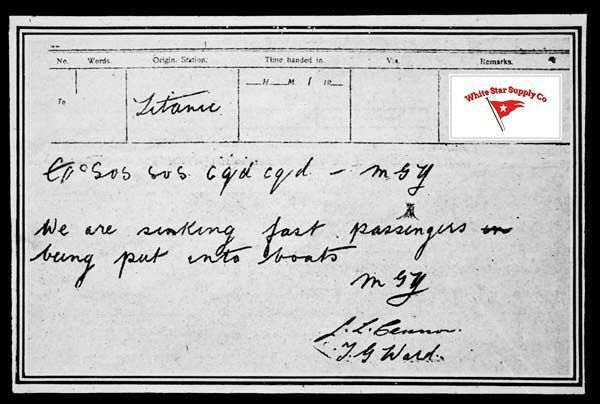 No. Words. Origin. Station. Time handed in. Via. Remarks.
H M 19
To
Titanic
White Star Supply Co
SOS SOS cqd cqd - MGY
We are sinking fast passengers in
being put into boats
MGY
T G Ward.